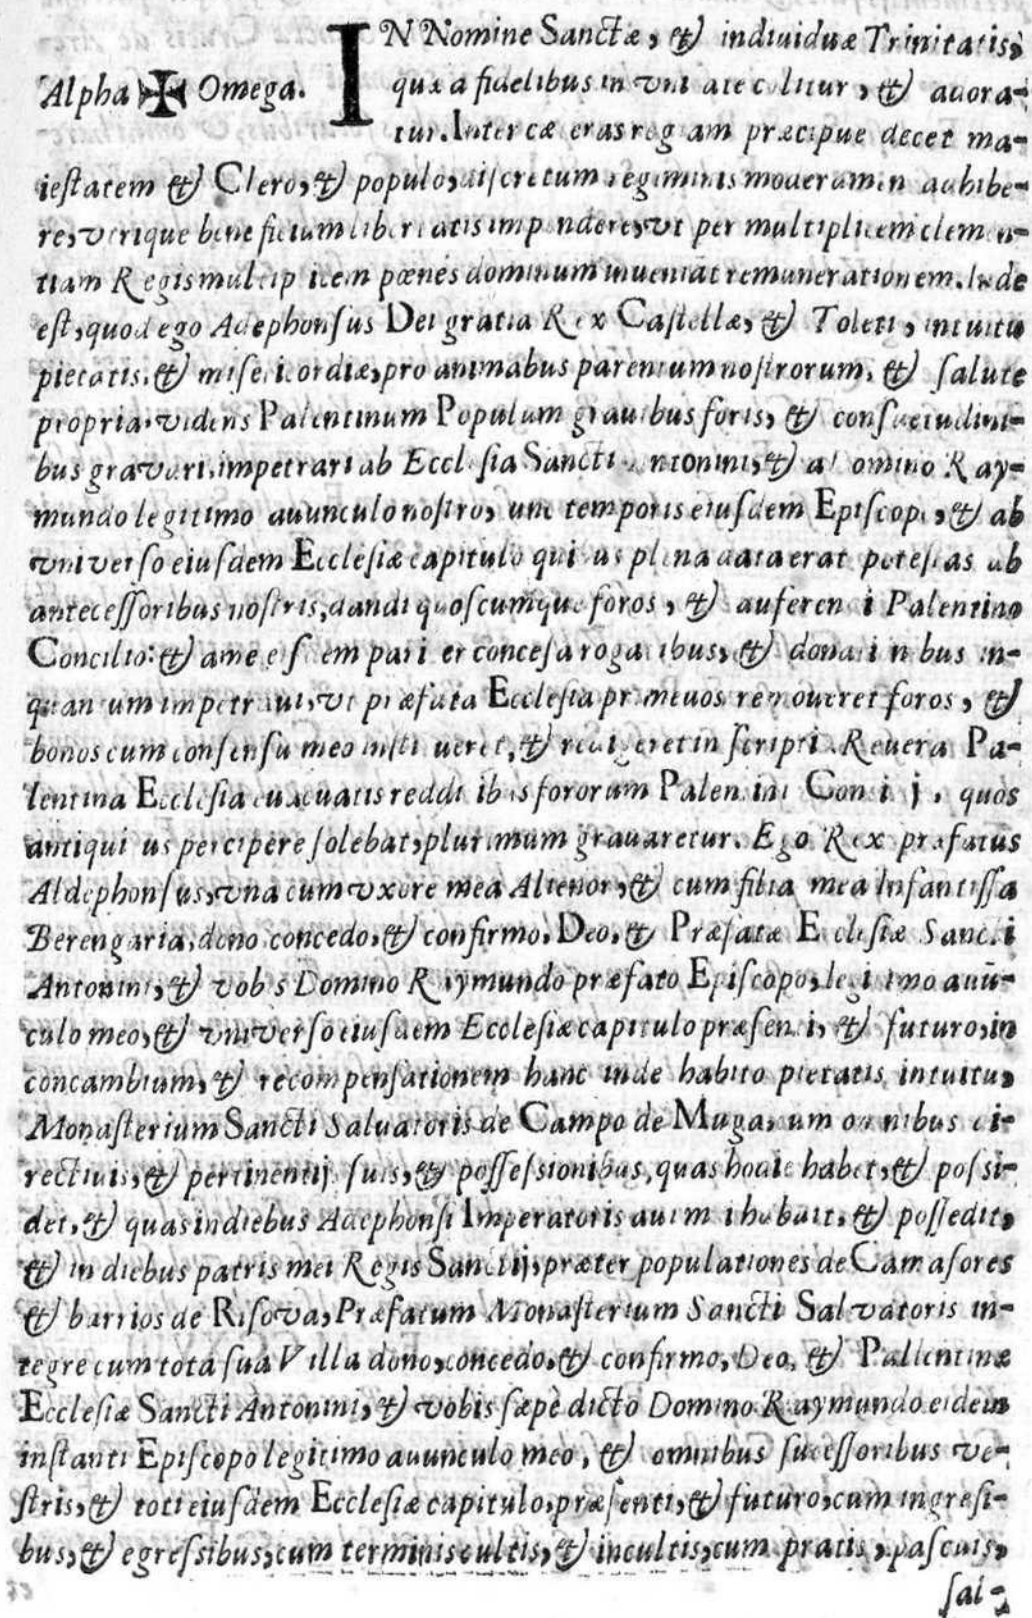 IN Nomine Sanctæ, & indiuiduæ Trinitatis,
Alpha ✠ Omega.
quæ a fidelibus in colitur, & adora-
tur. Inter præcipue decet ma-
iestatem & Clero, & populo, discretum regiminis moderamen adhibe-
re, vtrique beneficium libertatis impendere, vt per multiplicem clemen-
tiam Regis multiplicem pœnés dominum inueniāt remunerationem. Inde
est, quod ego Adephonsus Dei gratia Rex Castellæ, & Toleti, intuitu
pietatis, & misericordiæ, pro animabus parentum nostrorum, & salute
propria, videns Palentinum Populum grauibus foris, & consuetudini-
bus gravari, impetrari ab Ecclesia Sancti Antonini, & a Domino Ray-
mundo legitimo auunculo nostro, temporis eiusdem Episcopi, & ab
vniverso eiusdem Ecclesiæ capitulo quibus plena data erat potestas ab
antecessoribus nostris, dandi quoscumque foros, & auferendi Palentino
Concilio: & a me pari rogatibus, & in-
quantum impetraui, vt præfata Ecclesia removeret foros, &
bonos cum consensu meo & in scripti. Revera Pa-
lentina Ecclesia redditibus fororum Palentini quos
antiquitus percipere solebat, plurimum grauaretur. Ego Rex præfatus
Aldephonsus, vna cum vxore mea Alienor, & cum filia mea Infantissa
Berengaria, dono concedo, & confirmo, Deo, & Præfatæ Ecclesiæ Sancti
Antonini, & vobis Domino Raymundo præfato Episcopo, legitimo auū-
culo meo, & vniverso eiusdem Ecclesiæ capitulo præsenti, & futuro, in
concambium, & recompensationem hanc inde habito pietatis intuitu,
Monasterium Sancti Saluatoris de Campo de Muga, cum omnibus di-
rectiuis, & pertinentijs suis, & possessionibus, quas hodie habet, & possi-
det, & quas in diebus Adephonsi Imperatoris habuit, & possedit,
& in diebus patris mei Regis Sanctij, præter populationes de Camasores
& barrios de Risova, Præfatum Monasterium Sancti Salvatoris in-
tegre cum tota sua Villa dono, concedo, & confirmo, Deo, & Pallentinæ
Ecclesiæ Sancti Antonini, & vobis sæpè dicto Domino Raymundo eidem
instanti Episcopo legitimo auunculo meo, & omnibus sucessoribus ve-
stris, & toti eiusdem Ecclesiæ capitulo, præsenti, & futuro, cum ingresi-
bus, & egressibus, cum terminis cultis, & incultis, cum pratis, pascuis,
sai-